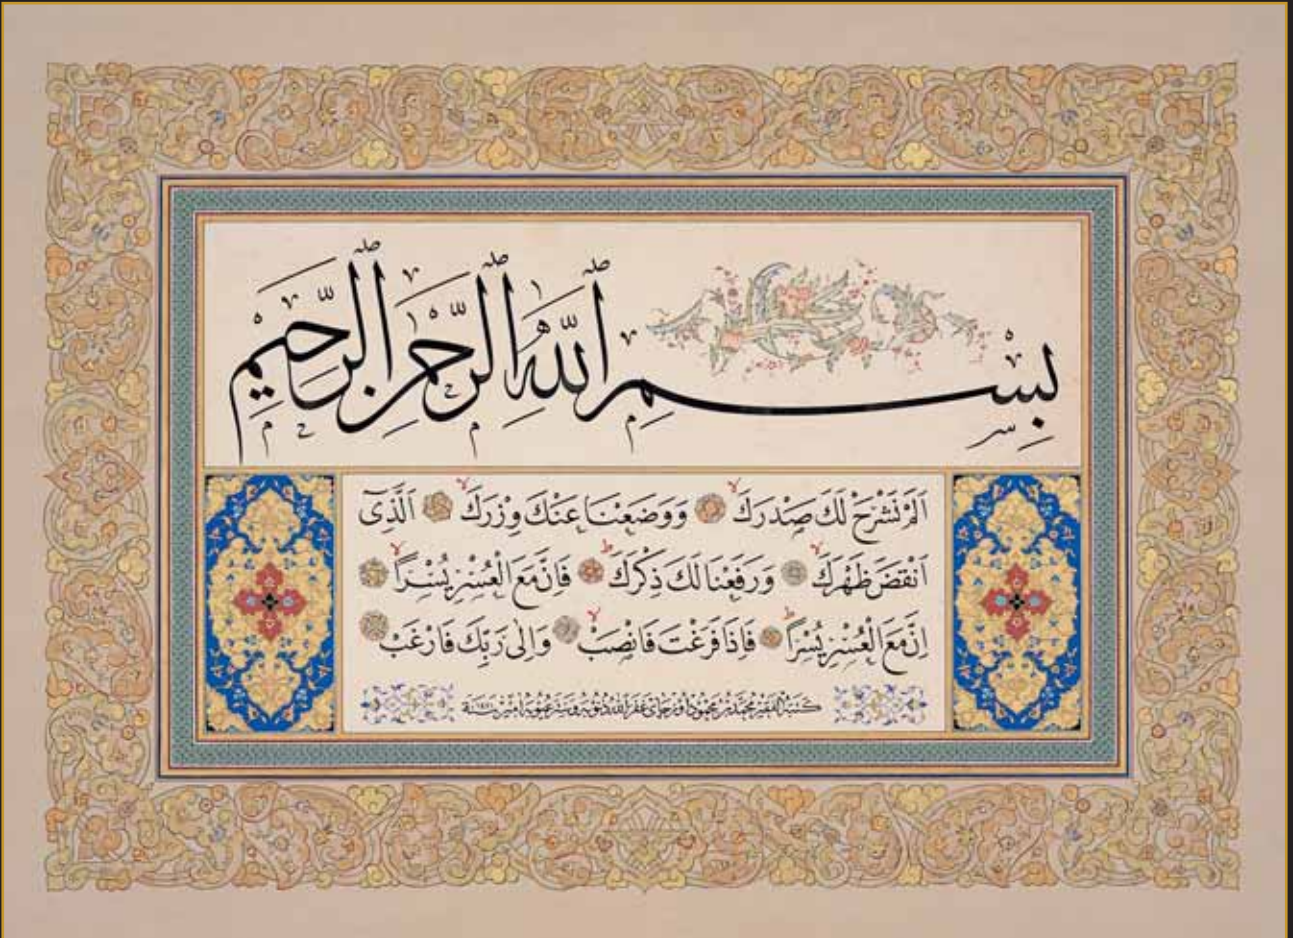 بِسْمِ اللّٰهِ الرَّحْمٰنِ الرَّحِيمِ
اَلَمْ نَشْرَحْ لَكَ صَدْرَكَ وَوَضَعْنَا عَنْكَ وِزْرَكَ اَلَّذٖى
اَنْقَضَ ظَهْرَكَ وَرَفَعْنَا لَكَ ذِكْرَكَ فَاِنَّ مَعَ الْعُسْرِ يُسْرًا
اِنَّ مَعَ الْعُسْرِ يُسْرًا فَاِذَا فَرَغْتَ فَانْصَبْ وَاِلٰى رَبِّكَ فَارْغَبْ
كتبه الفقير محمد بن محمود اوزچاى غفر الله ذنوبه وستر عيوبه امين سنة